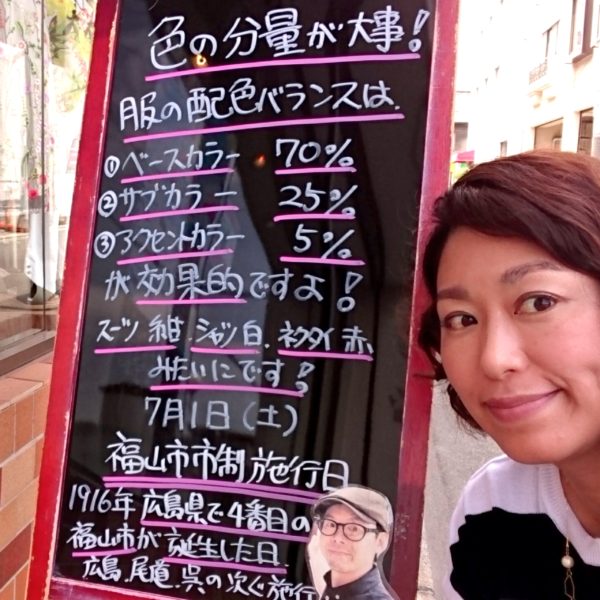 色の分量が大事!
服の配色バランスは、
①ベースカラー 70%
②サブカラー 25%
③アクセントカラー 5%
が効果的ですよ!
スーツ紺、シャツ白、ネクタイ赤、
みたいにです!
7月1日(土)
福山市市制施行日
1916年広島県で4番目の
福山市が誕生した日。
広島、尾道、呉の次ぐ施行‥